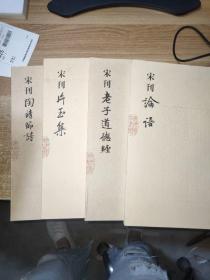 宋刊 論語
宋刊 老子道德經
宋刊 片玉集
宋刊 陶靖節詩